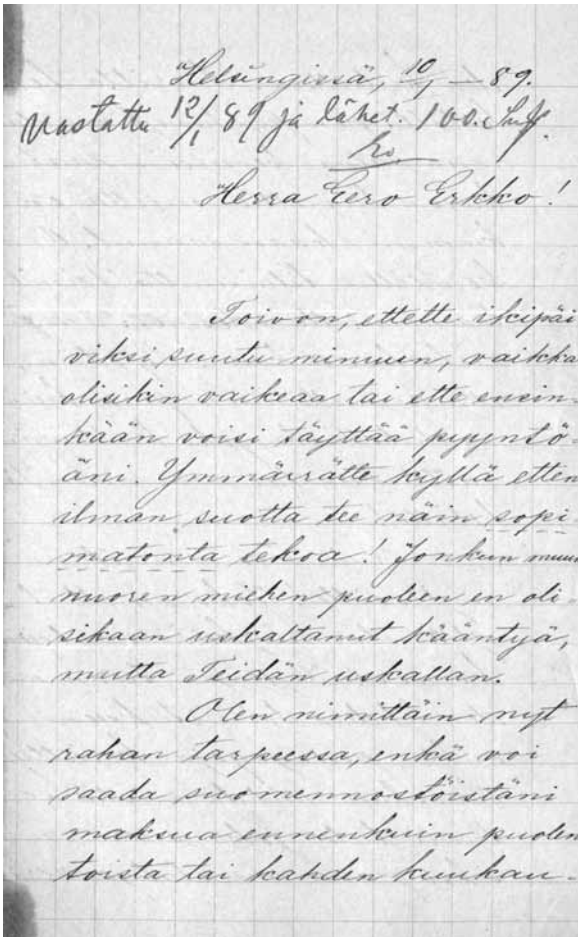 Helsingissä, 10/1 – 89.
Vastattu 12/1 89 ja lähet. 100. Smf.
Herra Eero Erkko!
Toivon, ettette ikipäi
viksi suutu minuun, vaikka
olisikin vaikeaa tai ette ensin-
kään voisi täyttää pyyntö-
äni. Ymmärrätte kyllä etten
ilman suotta tee näin sopi
matonta tekoa! Jonkun muun
nuoren miehen puoleen en oli-
sikaan uskaltanut kääntyä,
mutta Teidän uskallan.
Olen nimittäin nyt
rahan tarpeessa, enkä voi
saada suomennostöistäni
maksua ennenkuin puolen
toista tai kahden kuukau-